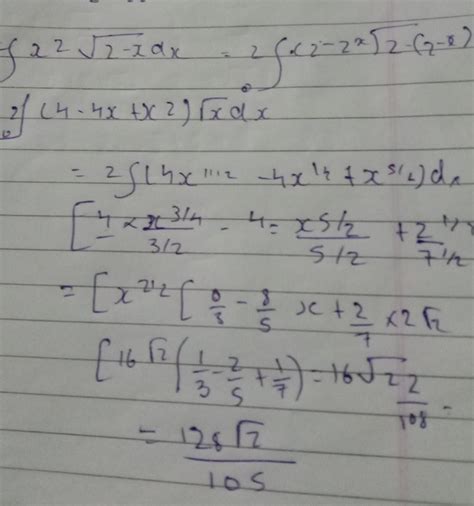 ∫ x2 √2-x dx = 2∫ x2-2x √2-(2-x)
2∫ (4-4x+x2) √x dx
= 2∫ (4x 1/2 - 4x 1/2 + x 5/2) dx
[ 4 × x 3/4 / 3/2 - 4 = x 5/2 / 5/2 + 2 / 7
= [ x 2/2 [ 8/3 - 8/5 x + 2/7 × 2√2
[ 16√2 ( 1/3 - 2/5 + 1/7 ) = 16√2 2/108 -
= 128√2 / 105